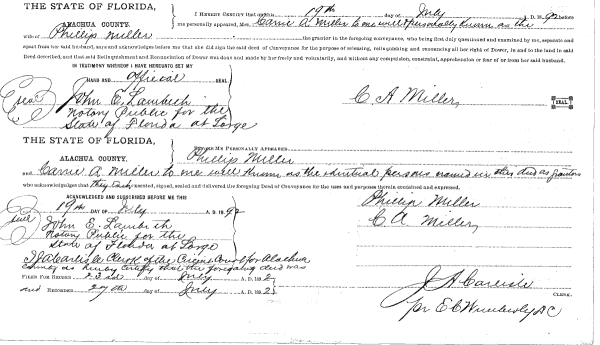 THE STATE OF FLORIDA,
ALACHUA COUNTY.
I HEREBY CERTIFY that on this 19th day of July A. D. 1892 before
me personally appeared, Mrs. Carrie A. Miller to me well personally known as the
wife of Phillip Miller the grantor in the foregoing conveyance, who being first duly questioned and examined by me, separate and
apart from her said husband, says and acknowledges before me that she did sign the said deed of Conveyance for the purpose of releasing, relinquishing and renouncing all her right of Dower, in and to the land in said
Deed described, and that said Relinquishment and Renunciation of Dower was done and made by her freely and voluntarily, and without any compulsion, constraint, apprehension or fear of or from her said husband.
IN TESTIMONY WHEREOF I HAVE HEREUNTO SET MY
HAND AND Official SEAL
(Seal) John E. Lambeth
Notary Public for the
State of Florida at Large
C A Miller, SEAL
THE STATE OF FLORIDA,
ALACHUA COUNTY.
BEFORE ME PERSONALLY APPEARED
Phillip Miller
and Carrie A. Miller to me well known as the identical persons named in this deed as grantors
who acknowledges that they executed, signed, sealed and delivered the foregoing Deed of Conveyance for the uses and purposes therein contained and expressed.
ACKNOWLEDGED AND SUBSCRIBED BEFORE ME THIS
19th DAY OF July A. D. 1892
(Seal) John E. Lambeth
Notary Public for the
State of Florida at Large
Phillip Miller
C. A. Miller,
I J A Carlisle Clerk of the Circuit Court for Alachua
County do hereby certify that the foregoing deed was
FILED FOR RECORD 22nd day of July A. D. 1892
and RECORDED 27th day of July A. D. 1892
J A Carlisle CLERK.
pr E C Wimberly DC